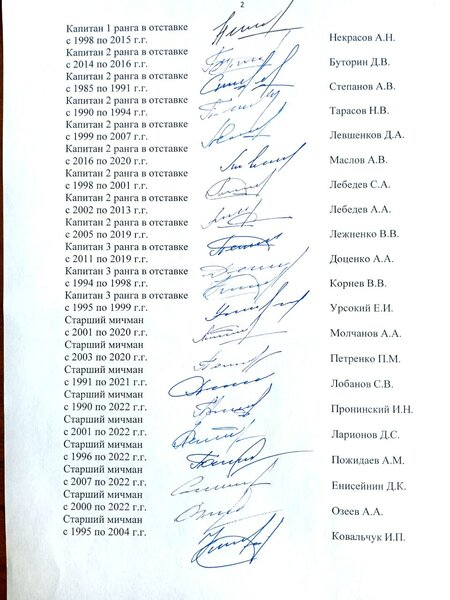 2
Капитан 1 ранга в отставке
с 1998 по 2015 г.г. Некрасов А.Н.
Капитан 2 ранга в отставке
с 2014 по 2016 г.г. Буторин Д.В.
Капитан 2 ранга в отставке
с 1985 по 1991 г.г. Степанов А.В.
Капитан 2 ранга в отставке
с 1990 по 1994 г.г. Тарасов Н.В.
Капитан 2 ранга в отставке
с 1999 по 2007 г.г. Левшенков Д.А.
Капитан 2 ранга в отставке
с 2016 по 2020 г.г. Маслов А.В.
Капитан 2 ранга в отставке
с 1998 по 2001 г.г. Лебедев С.А.
Капитан 2 ранга в отставке
с 2002 по 2013 г.г. Лебедев А.А.
Капитан 2 ранга в отставке
с 2005 по 2019 г.г. Лежненко В.В.
Капитан 3 ранга в отставке
с 2011 по 2019 г.г. Доценко А.А.
Капитан 3 ранга в отставке
с 1994 по 1998 г.г. Корнев В.В.
Капитан 3 ранга в отставке
с 1995 по 1999 г.г. Урсокий Е.И.
Старший мичман
с 2001 по 2020 г.г. Молчанов А.А.
Старший мичман
с 2003 по 2020 г.г. Петренко П.М.
Старший мичман
с 1991 по 2021 г.г. Лобанов С.В.
Старший мичман
с 1990 по 2022 г.г. Пронинский И.Н.
Старший мичман
с 2001 по 2022 г.г. Ларионов Д.С.
Старший мичман
с 1996 по 2022 г.г. Пожидаев А.М.
Старший мичман
с 2007 по 2022 г.г. Енисейнин Д.К.
Старший мичман
с 2000 по 2022 г.г. Озеев А.А.
Старший мичман
с 1995 по 2004 г.г. Ковальчук И.П.